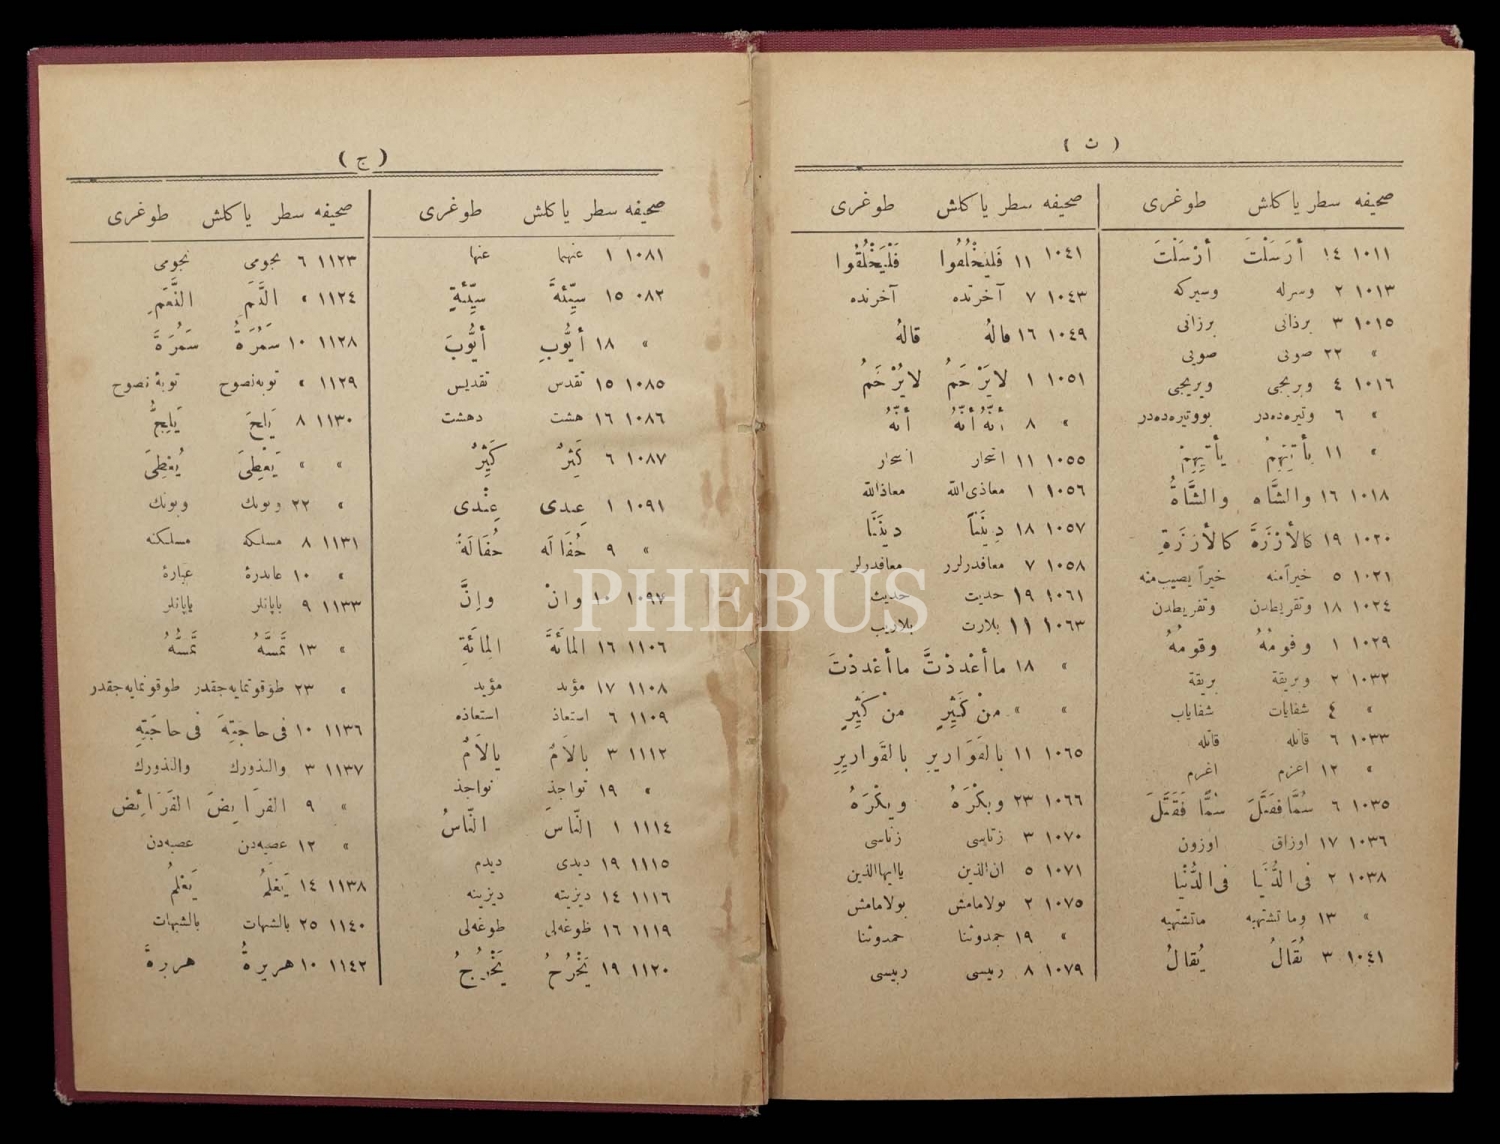 ( ث )
صحیفه سطر یاكلش طوغری
١٠١١ ١٤ أرَسَلْتَ أرْسَلْتَ
١٠١٣ ٢ وسرله وسيركه
١٠١٥ ٣ برذانی برزانی
» ٢٢ صونی صوبی
١٠١٦ ٤ وبربجی ويريجی
» ٦ وتيره‌ده‌در بووتيره‌ده‌در
» ١١ بأتِيَهِمْ يأتِيهِمْ
١٠١٨ ١٦ والشَّاه والشَّاةُ
١٠٢٠ ١٩ كالأرْزَةَ كالأرْزَةِ
١٠٢١ ٥ خيراًمنه خيراً يصيب‌منه
١٠٢٤ ١٨ وتقريطدن وتفريطدن
١٠٢٩ ١ وفومُهُ وقومُهُ
١٠٣٢ ٢ وبريقة بريقة
» ٤ شفايات شفاياب
١٠٣٣ ٦ قائله قائله
» ١٢ اعزم اغرم
١٠٣٥ ٦ سُمًّا فَقَتَلَ سُمًّا فَقَتَلَ
١٠٣٦ ١٧ اوزاق اوزون
١٠٣٨ ٢ فی الدُّنَيا فی الدُّنْيا
» ١٣ وماتشتهيه ماتشتهيه
١٠٤١ ٣ نُقَالُ يُقالُ
صحیفه سطر یاكلش طوغری
١٠٤١ ١١ فَليَخْلُفُوا فَلْيَخْلُقُوا
١٠٤٣ ٧ آخرتده آخرنده
١٠٤٩ ١٦ فالهُ قالهُ
١٠٥١ ١ لايَرْحَمُ لايُرْحَمُ
» ٨ أنَّهُ أنَّهُ أنَّهُ
١٠٥٥ ١١ اشجار اسحار
١٠٥٦ ١ معاذی‌الله معاذالله
١٠٥٧ ١٨ دِينَناً دينَنَا
١٠٥٨ ٧ معاقدرلرر معاقدرلر
١٠٦١ ١٩ حديت حديث
١٠٦٣ ١١ بلارت بلاريب
» ١٨ ماأعْددْتَّ ماأعْددْتَ
» » منْ كَثِيْرٍ منْ كَثِيرٍ
١٠٦٥ ١١ بالقَوَاريرِ بالقَواريرِ
١٠٦٦ ٢٣ وبكْرَهُ ويكْرَهُ
١٠٧٠ ٣ زتاسی زناسی
١٠٧١ ٥ ان‌الذين ياايهاالذين
١٠٧٥ ٢ بولامامش بولامامش
» ١٩ جمدوثنا حمدوثنا
١٠٧٩ ٨ رئيسی رئيسی
( ج )
صحیفه سطر یاكلش طوغری
١٠٨١ ١ عنهما عنها
٠٨٢ ١٥ سيِّئةً سيِّئةٍ
» ١٨ أيُّوبِ أيُّوبَ
١٠٨٥ ١٥ تقدس تقديس
١٠٨٦ ١٦ هشت دهشت
١٠٨٧ ٦ كَثِرٌ كَثِيْرٌ
١٠٩١ ١ عِبدی عِنْدی
» ٩ حُفَالَه حُفَالَةٌ
١٠٩٧ ١٠ وانْ وإنَّ
١١٠٦ ١٦ المائَةَ المائَةِ
١١٠٨ ١٧ مؤبد مؤيد
١١٠٩ ٦ استعاذ استعاذه
١١١٢ ٣ بالأمُ يالأمُ
» ١٩ تواجذ نواجذ
١١١٤ ١ النَّاسَ النَّاسُ
١١١٥ ١٩ ديدی ديدم
١١١٦ ١٤ ديزيته ديزينه
١١١٩ ١٦ ظوغه‌لی طوغه‌لی
١١٢٠ ١٩ يَخْرُحُ يَخْرُجُ
صحیفه سطر یاكلش طوغری
١١٢٣ ٦ بجومی نجومی
١١٢٤ » النَّمَ النَّعَمِ
١١٢٨ ١٠ سَمُرَةُ سَمُرَةَ
١١٢٩ » توبه‌نصوح توبۀ نصوح
١١٣٠ ٨ يَلِحَ يَلِجُّ
» » يَعْطِیَ يُعْطِیَ
» ٢٢ وبونك وبونك
١١٣١ ٨ مسلكه مسلكنه
» ١٠ عابدرة عبارة
١١٣٣ ٩ بابانلر يايانلر
» ١٣ تَمَسَّهُ تَمَسُّهُ
» ٢٣ طوقونمایه‌جقدر طوقونمایه‌جقدر
١١٣٦ ١٠ فی حاجَتِهِ فی حاجَتِهِ
١١٣٧ ٣ والندورك والنذورك
» ٩ الفرَايِضَ الفَرَائِضِ
» ١٢ عصبه‌دن عصبه‌دن
١١٣٨ ١٤ يَعْلَمُ يَعْلَمُ
١١٤٠ ٢٥ بالشبهات بالشبهات
١١٤٢ ١٠ هريرةُ هريرةَ
PHEBUS